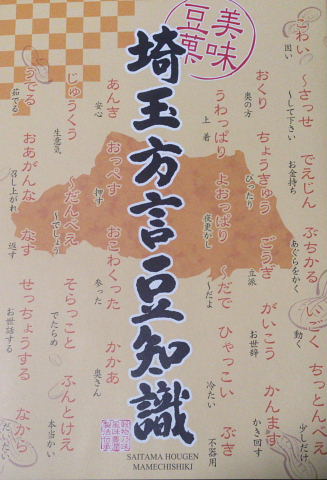 美味
豆菓
埼玉方言豆知識
こわい
固い
〜さっせ
〜して下さい
でえじん
お金持ち
ぶちかる
あぐらをかく
いごく
動く
ちっとんべえ
少しだけ
おくり
奥の方
ちょうきゅう
ぴったり
ごうぎ
立派
がいこう
お世辞
かんます
かき回す
うわっぱり
上着
よおっぱり
夜更かし
〜だで
〜だよ
ひゃっこい
冷たい
ぶき
不器用
あんき
安心
おっぺす
押す
おこわくった
参った
かかあ
奥さん
じゅうくう
生意気
〜だんべえ
〜でしょう
そらっこと
でたらめ
ふんとけえ
本当かい
うでる
茹でる
おあがんな
召し上がれ
なす
返す
せっちょうする
お世話する
なから
だいたい
SAITAMA HOUGEN
MAMECHISHIKI